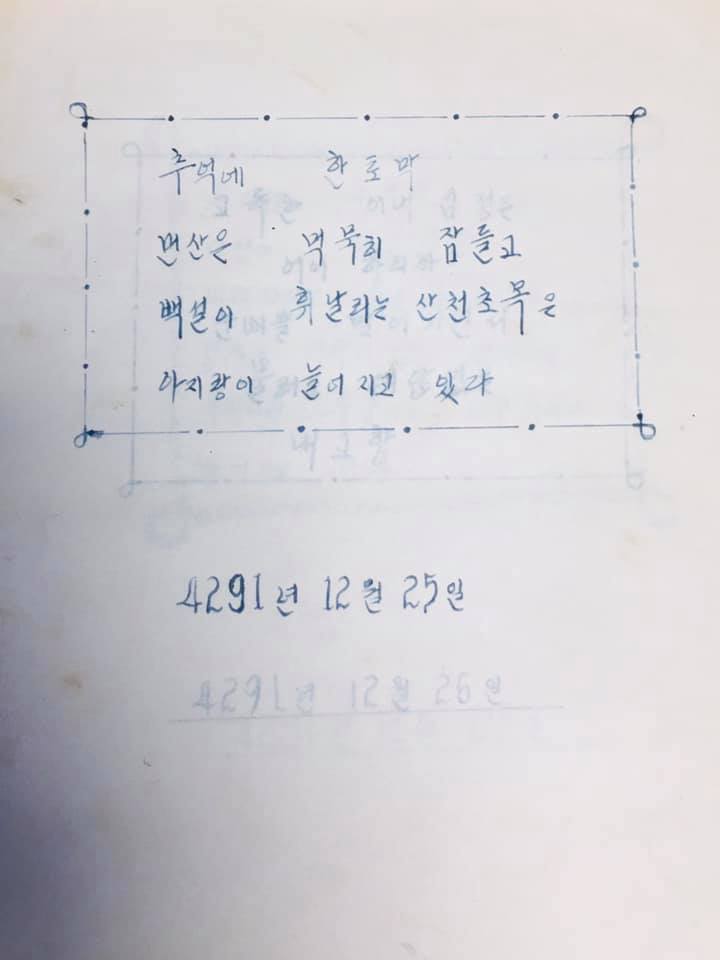 추억에 한토막
먼산은 먹묵히 잠들고
백설이 휘날리는 산천초목은
아지랑이 늘어지고 있다
4291년 12월 25일
4291년 12월 26일